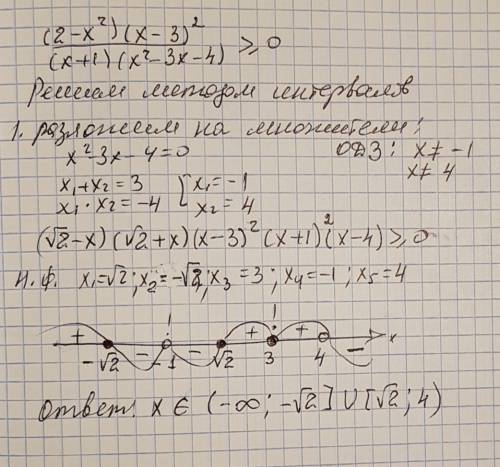 (2-x²)(x-3)²
(x+1)(x²-3x-4) ≥ 0
Решаем методом интервалов
1. разложим на множители:
x²-3x-4=0 ОДЗ: x≠-1
x≠4
x₁+x₂=3 x₁=-1
x₁·x₂=-4 x₂=4
(√2-x)(√2+x)(x-3)²(x+1)²(x-4)≥0
Н.ф. x₁=√2; x₂=-√2; x₃=3; x₄=-1; x₅=4
+ - - + + -
-√2 -1 √2 3 4 x
Ответ: x∈(-∞; -√2]∪[√2; 4)